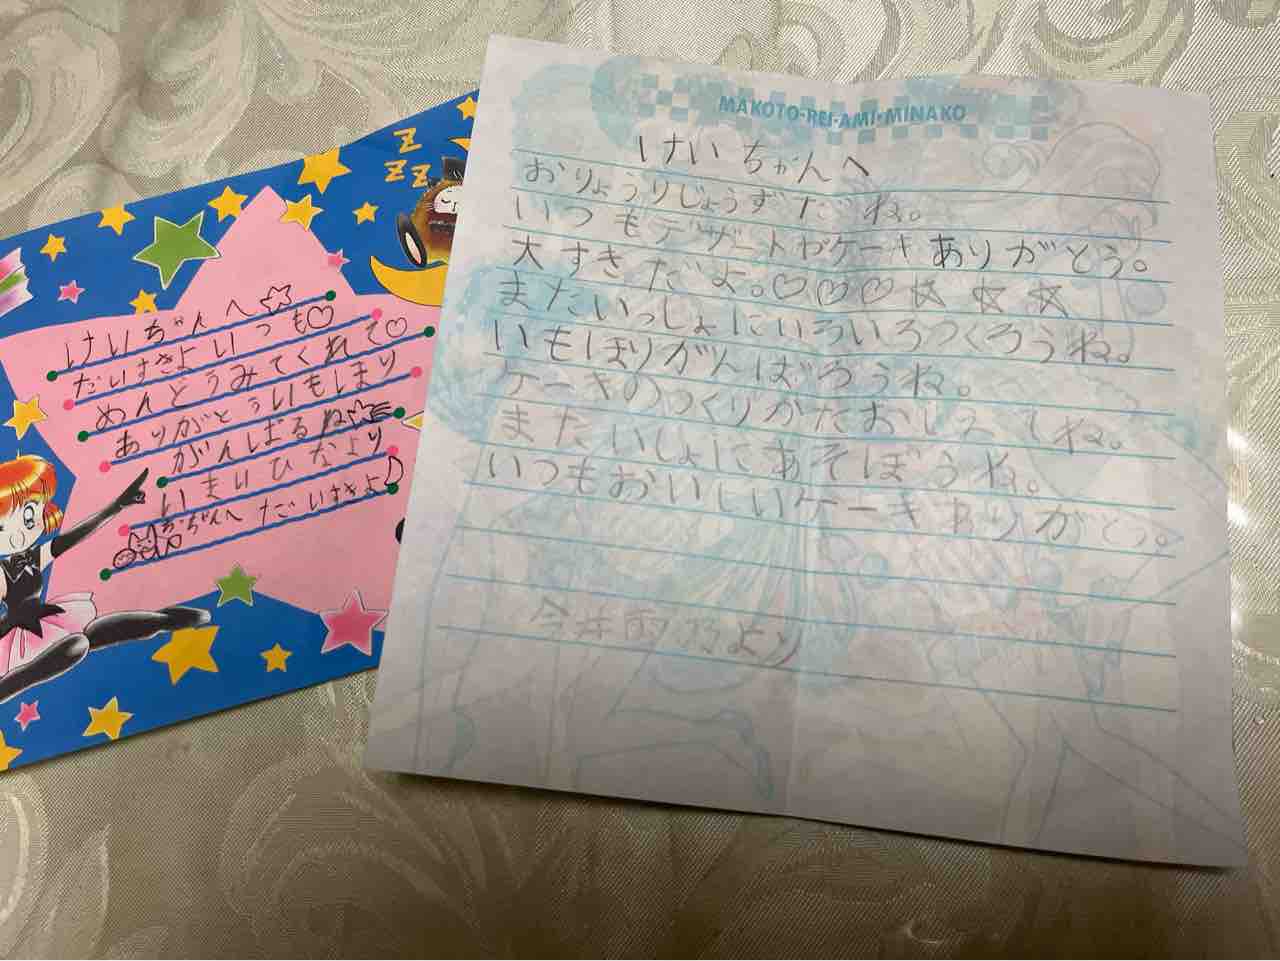 けいちゃんへ☆
だいすきよいつも♡
めんどうみてくれて♡
ありがとういもほり
がんばるね☆
いまいひなより
けいちゃんへ だいすきよ♪
Z
Z
Z
MAKOTO・REI・AMI・MINAKO
けいちゃんへ
おりょうりじょうずだね。
いつもデザートやケーキありがとう。
大すきだよ。♡♡♡☆☆☆
またいっしょにいろいろつくろうね。
いもほりがんばろうね。
ケーキのつくりかたおしえてね。
またいしょにあそぼうね。
いつもおいしいケーキありがとう。
今井
より